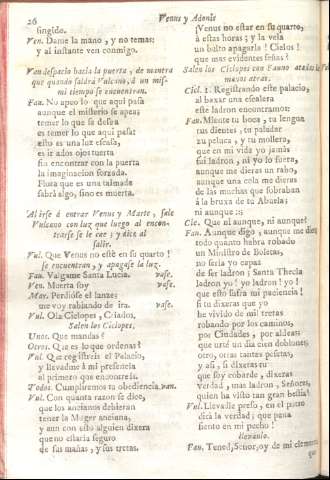 26
Venus y Adonis
fingido.
Ven. Dame la mano, y no temas:
y al instante ven conmigo.
Van despacio hacia la puerta, de manera
que quando saldrá Vulcano, á un mis-
mo tiempo se encuentran.
Fau. No apeo lo que aqui pasa
aunque el misterio se apea:
temer lo que se desea
es temer lo que aqui pasa:
esto es una luz escasa,
es ir ados ojos tuerta
sin encontrar con la puerta
la imaginacion forzada.
Flora que es una taimada
sabrá algo, sino es muerta.
Al irse á entrar Venus y Marte, sale
Vulcano con luz que luego al encon-
trarse se le cae; y dice al
salir.
Vul. Que Venus no esté en su quarto!
se encuentran, y apagase la luz.
Fau. Valgame Santa Lucia. vase.
Ven. Muerta soy vase.
Mar. Perdióse el lanze;
me voy rabiando de ira. vase.
Vul. Ola Ciclopes, Criados,
Salen los Ciclopes.
Unos. Que mandas?
Otros. Que es lo que ordenas?
Vul. Que registreis el Palacio,
y llevadme á mi presencia
al primero que encontreis.
Todos. Cumpliremos tu obediencia. van.
Vul. Con quanta razon se dice,
que los ancianos debieran
tener la Muger anciana,
y aun con esto alguien dixera
que no estaria seguro
de sus mañas, y sus tretas.
Venus no estar en su quarto,
á estas horas; y la vela
un bulto apagarla! Cielos!
que mas evidentes señas?
Salen los Ciclopes con Fauno atadas las
manos atras.
Cicl. 1. Registrando este palacio,
al baxar una escalera
este ladron encontramos:
Fau. Miente tu boca, tu lengua
tus dientes, tu paladar
tu peluca, y tu mollera,
que en mi vida yo jamás
fui ladron, ni yo lo fuera,
aunque me dieras un rabo,
aunque una cola me dieras
de las muchas que sobraban
á la bruxa de tu Abuela;
ni aunque:::
Cic. Que ni aunque, ni aunque?
Fau. Aunque digo, aunque me dieran
todo quanto habra robado
un Ministro de Boletas,
no seria yo capaz
de ser ladron; Santa Thecla
ladron yo! yo ladron! yo!
que esto sufra mi paciencia!
si tu dixeras que yo
he vivido de mil tretas
robando por los caminos,
por Ciudades, por aldeas:
que urté un dia cien doblones,
otro, otras tantas pesetas,
y asi, si dixeras tu
que soy cobarde, dixeras
verdad, mas ladron, Señores,
quien ha visto tan gran bestia!
Vul. Llevadle preso, en el potro
dirá la verdad; que pena
siento en mi pecho!
llevanlo.
Fau. Tened, Señor, oy de mi clemencia